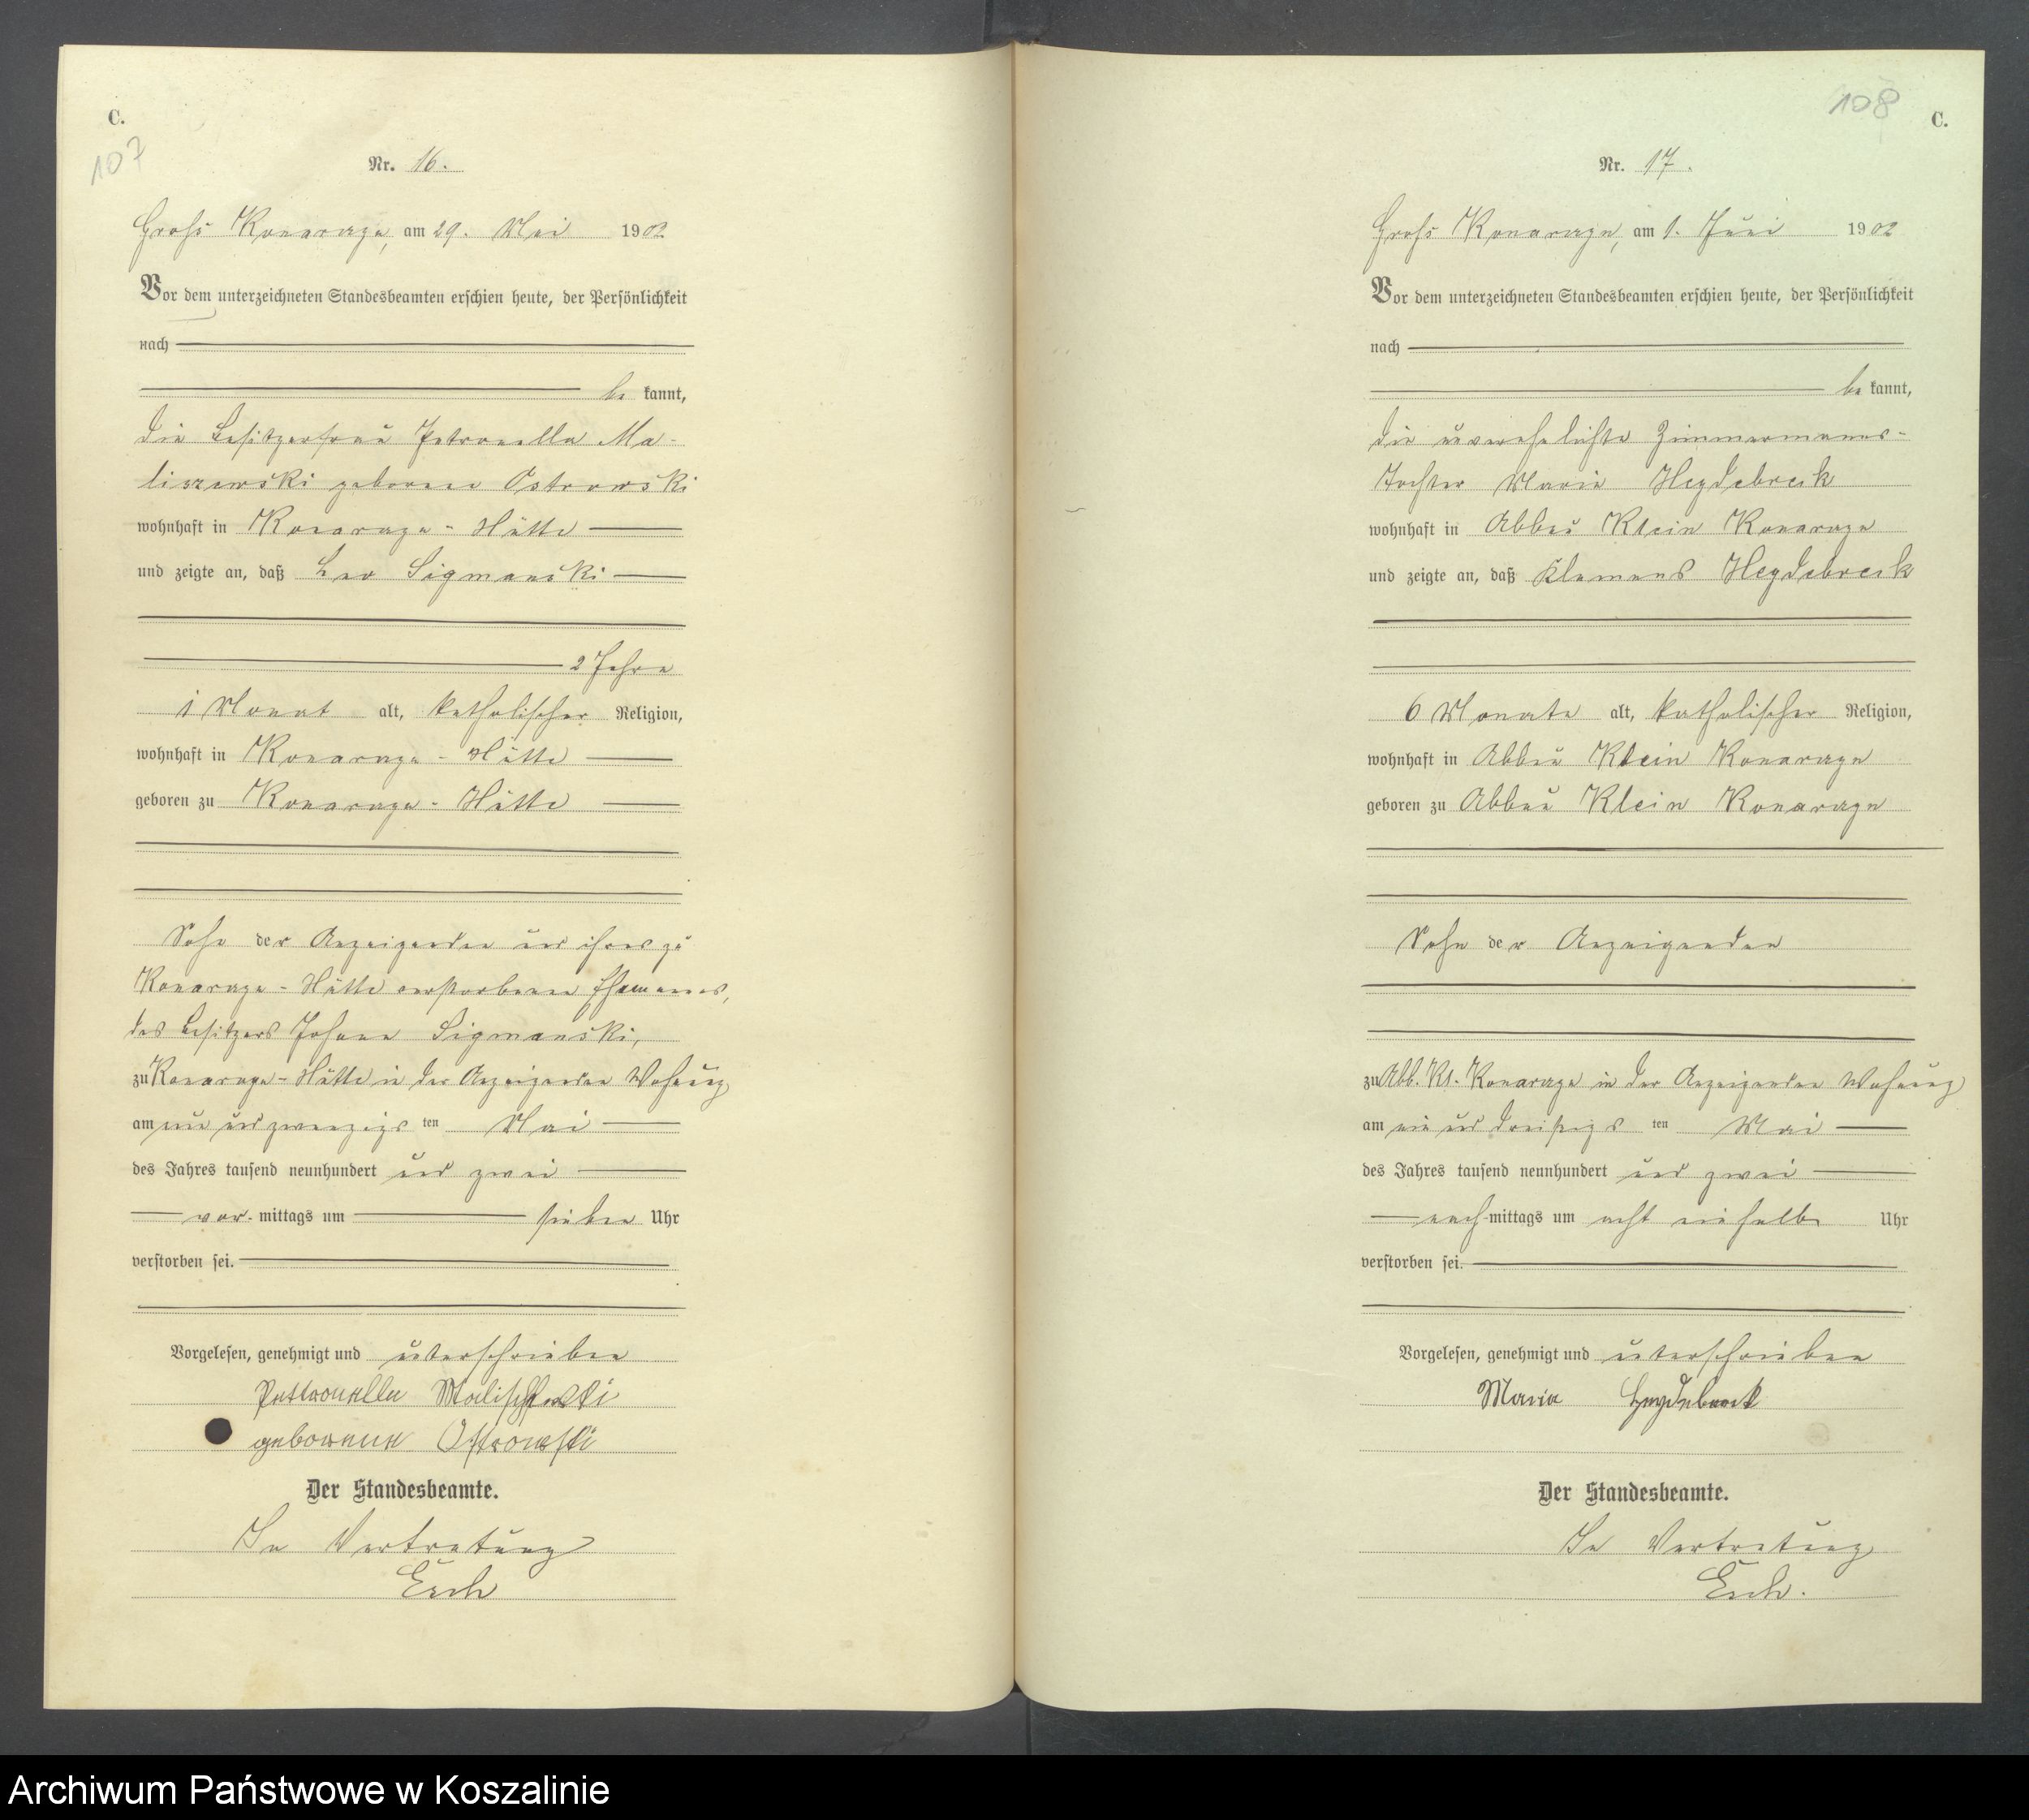 C.
107
Nr. 16.
Groß Konarzyn, am 29. Mai 1902
Vor dem unterzeichneten Standesbeamten erschien heute, der Persönlichkeit
nach
be kannt,
die Besitzerfrau Petronella Ma-
liszewski geborene Ostrowski
wohnhaft in Konarzyn-Hütte
und zeigte an, daß Leo Sigmanski
2 Jahre
1 Monat alt, katholischer Religion,
wohnhaft in Konarzyn-Hütte
geboren zu Konarzyn-Hütte
Sohn der Anzeigenden und ihres zu
Konarzyn-Hütte verstorbenen Ehemannes,
des Besitzers Johann Sigmanski,
zu Konarzyn-Hütte in der Anzeigenden Wohnung
am und zwanzigs ten Mai
des Jahres tausend neunhundert und zwei
vor-mittags um sieben Uhr
verstorben sei.
Vorgelesen, genehmigt und unterschrieben
Pettronella Malischewski
geborenne Ostrowski
Der Standesbeamte.
In Vertretung
108
C.
Nr. 17.
Groß Konarzyn, am 1. Juni 1902
Vor dem unterzeichneten Standesbeamten erschien heute, der Persönlichkeit
nach
be kannt,
die unverehelichte Zimmermanns-
tochter Maria Heydebreck
wohnhaft in Abbau Klein Konarzyn
und zeigte an, daß Klemens Heydebreck
6 Monate alt, katholischer Religion,
wohnhaft in Abbau Klein Konarzyn
geboren zu Abbau Klein Konarzyn
Sohn der Anzeigenden
zu Abb. Kl. Konarzyn in der Anzeigenden Wohnung
am ein und dreißigs ten Mai
des Jahres tausend neunhundert und zwei
nach-mittags um acht einhalb Uhr
verstorben sei.
Vorgelesen, genehmigt und unterschrieben
Maria Heydebreck
Der Standesbeamte.
In Vertretung
Archiwum Państwowe w Koszalinie